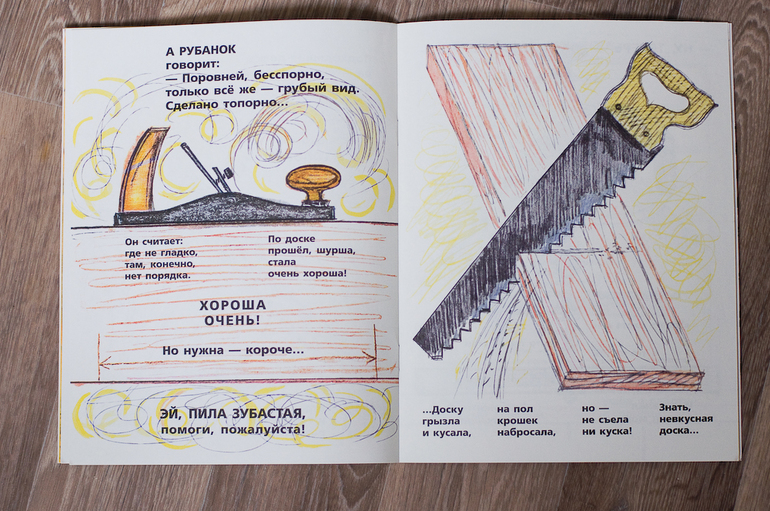 А РУБАНОК
говорит:
— Поровней, бесспорно,
только всё же — грубый вид.
Сделано топорно...
Он считает:
где не гладко,
там, конечно,
нет порядка.
По доске
прошёл, шурша,
стала
очень хороша!
ХОРОША
ОЧЕНЬ!
Но нужна — короче...
ЭЙ, ПИЛА ЗУБАСТАЯ,
помоги, пожалуйста!
...Доску
грызла
и кусала,
на пол
крошек
набросала,
но —
не съела
ни куска!
Знать,
невкусная
доска...